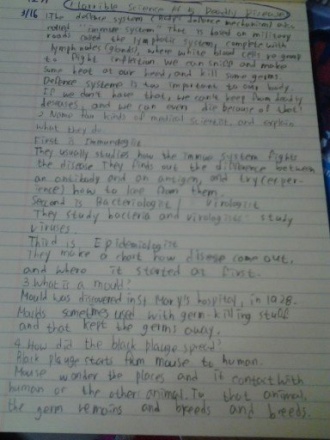 Horrible Science
3/16
1. The defence system
called "immune system" That is based on military
road called the lymphatic system, complete with
lymph nodes (glands), where white blood
to fight infection we can snip and make
some heat at our head, and kill some germs.
Defense systems is too important to our body
If we don't have that, we can't keep from deadly
diseases, and we can even die because of that
2 Name two kinds of medical scientist and explain
what they do.
First is immunologist
They usually studies how the immune system fights
the disease They finds out the difference between
an antibody and an antigen, and try
how to live from them.
Second is Bacteriologist / Virologist
They study bacteria and virologist study
viruses.
Third is, Epidemiologist
They make a chart how disease come out,
and where it started at first.
3. What is a mould?
Mould was discovered in St Mary's hospital, in 1928.
Moulds sometimes used with germ-killing stuff
and that kept the germs away.
4. How did the black plauge spread?
Black plauge starts from mouse to human.
Mouse wonder the places and it contact with
human or the other animal. In that animal,
the germ remains and breeds and breeds.